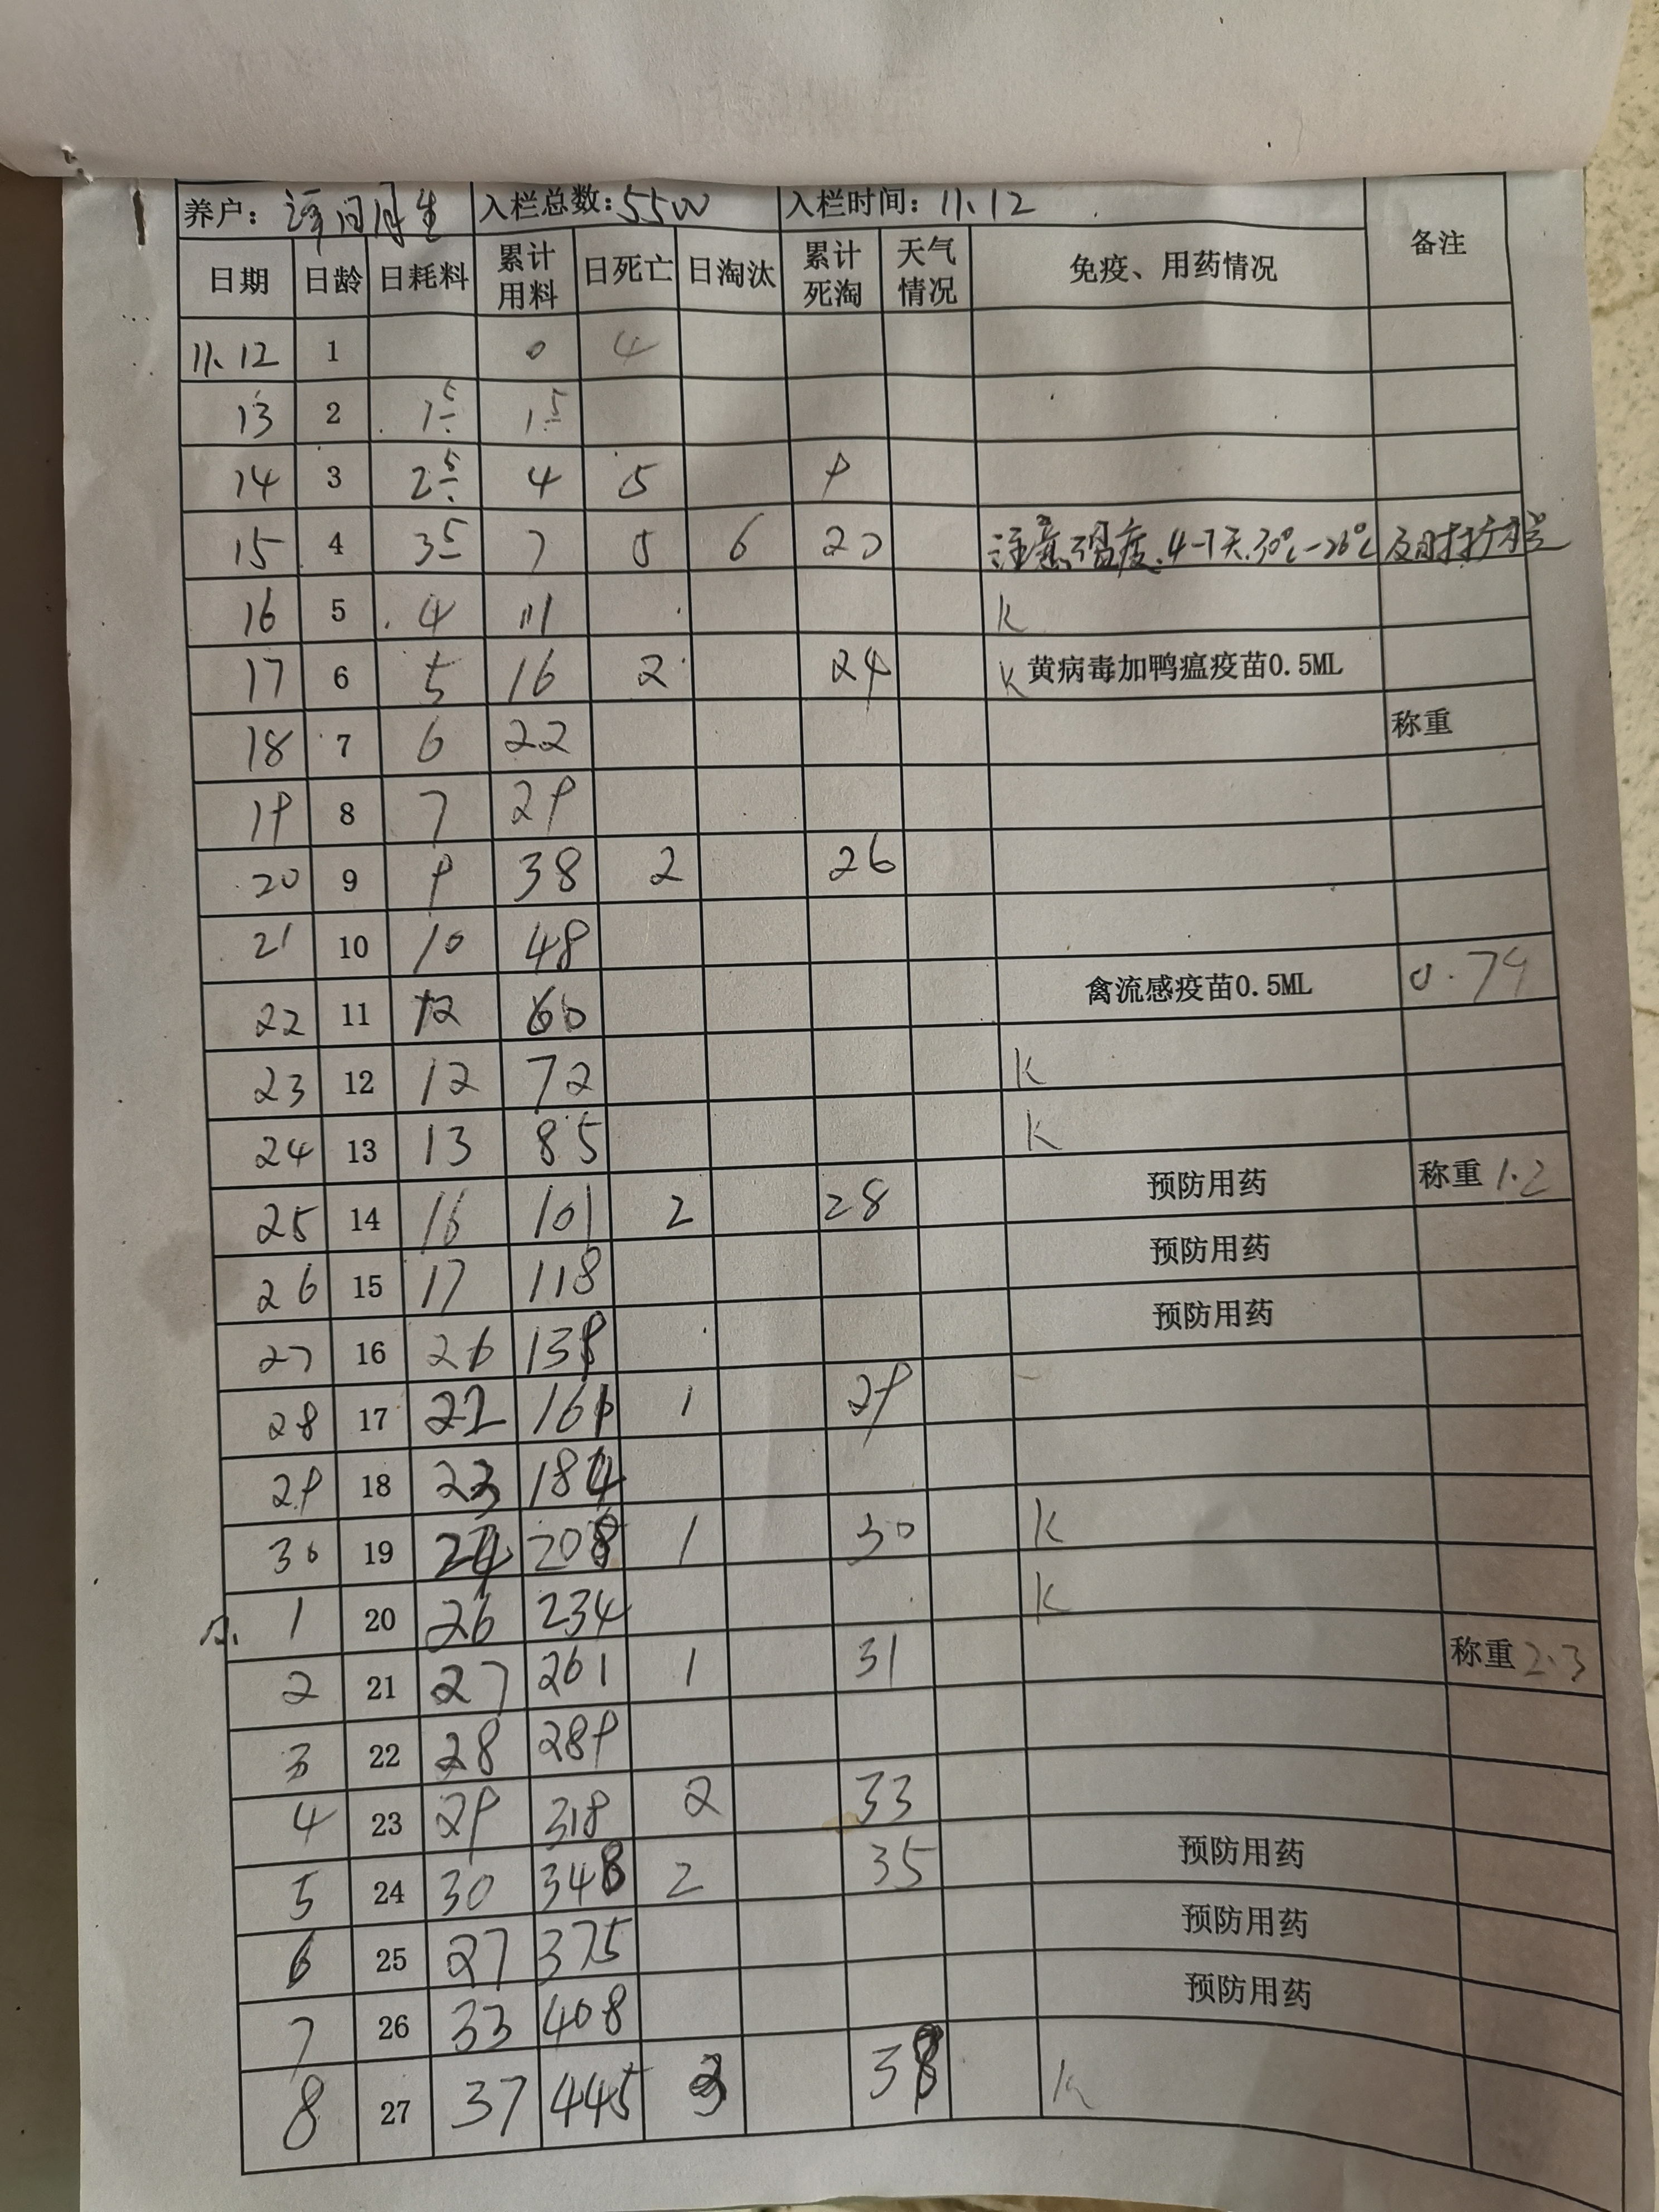 养户： 入栏总数：5500 入栏时间：11.12 备注
日期 日龄 日耗料 累计用料 日死亡 日淘汰 累计死淘 天气情况 免疫、用药情况
11.12 1 0 4
13 2 1.5 1.5
14 3 2.5 4 5 9
15 4 3.5 7 5 6 20 注意温度.4-7天.30℃-26℃ 及时扩栏
16 5 4 11 K
17 6 5 16 2 24 K 黄病毒加鸭瘟疫苗0.5ML
18 7 6 22 称重
19 8 7 29
20 9 9 38 2 26
21 10 10 48
22 11 12 60 禽流感疫苗0.5ML 0.79
23 12 12 72 K
24 13 13 85 K
25 14 16 101 2 28 预防用药 称重 1.2
26 15 17 118 预防用药
27 16 20 138 预防用药
28 17 22 161 1 29
29 18 23 184
30 19 24 208 1 30 K
12. 1 20 26 234 K
2 21 27 261 1 31 称重 2.3
3 22 28 289
4 23 29 318 2 33
5 24 30 348 2 35 预防用药
6 25 27 375 预防用药
7 26 33 408 预防用药
8 27 37 445 3 38 K